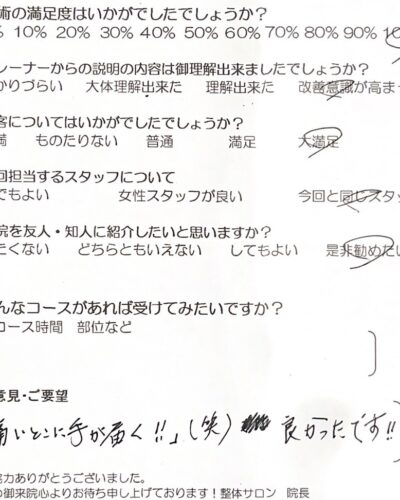 術の満足度はいかがでしたでしょうか？
% 10% 20% 30% 40% 50% 60% 70% 80% 90% 10
レーナーからの説明の内容は御理解出来ましたでしょうか？
かりづらい 大体理解出来た 理解出来た 改善意識が高まっ
客についてはいかがでしたでしょうか？
満 ものたりない 普通 満足 大満足
回担当するスタッフについて
でもよい 女性スタッフが良い 今回と同じスタッ
院を友人・知人に紹介したいと思いますか？
たくない どちらともいえない してもよい 是非勧めたい
んなコースがあれば受けてみたいですか？
コース時間 部位など
意見・ご要望
痛いとこに手が届く!!」(笑) 良かったです!!
協力ありがとうございました。
の御来院心よりお待ち申し上げております！整体サロン 院長